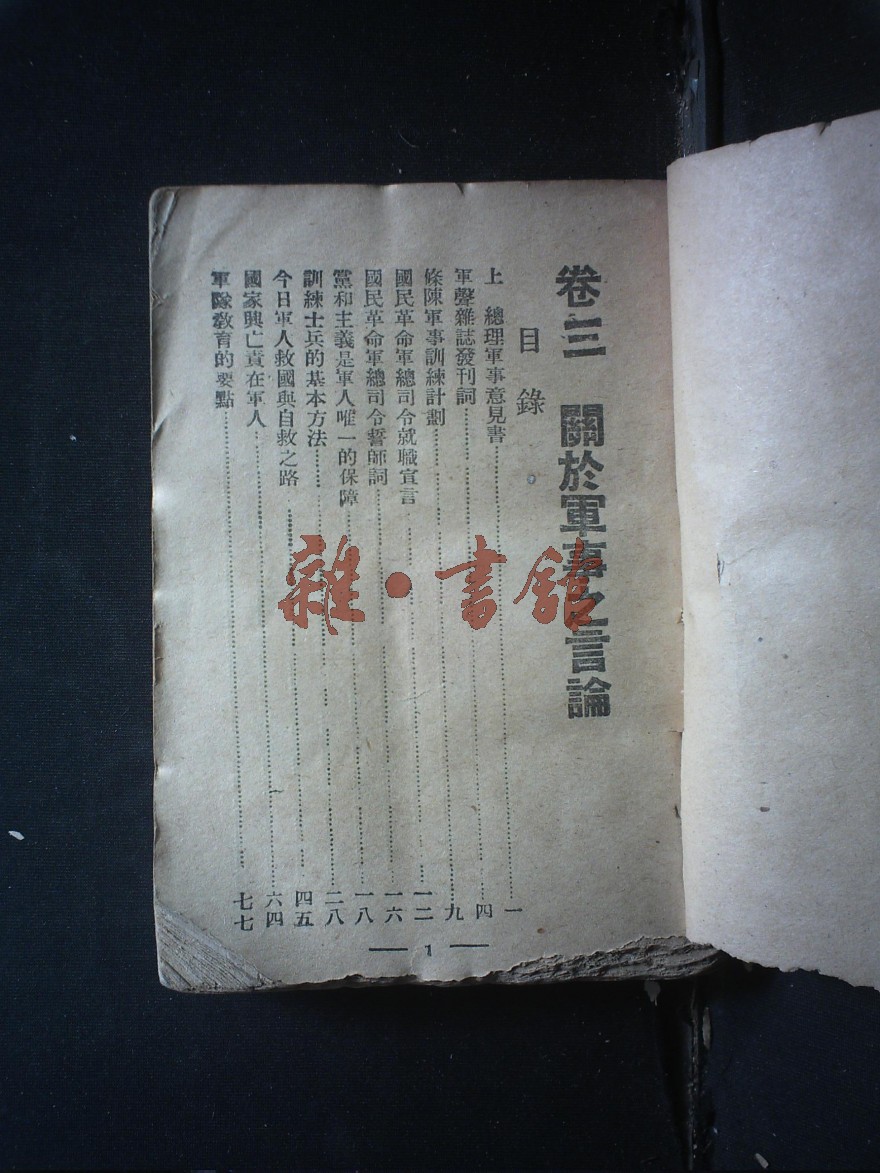 卷三 關於軍事之言論
目錄
上 總理軍事意見書……一
軍聲雜誌發刊詞……四
條陳軍事訓練計劃……九
國民革命軍總司令就職宣言……一二
國民革命軍總司令誓師詞……一六
黨和主義是軍人唯一的保障……一八
訓練士兵的基本方法……二八
今日軍人救國與自救之路……四五
國家興亡責在軍人……六四
軍隊教育的要點……七七
— 1 —
雜·書館